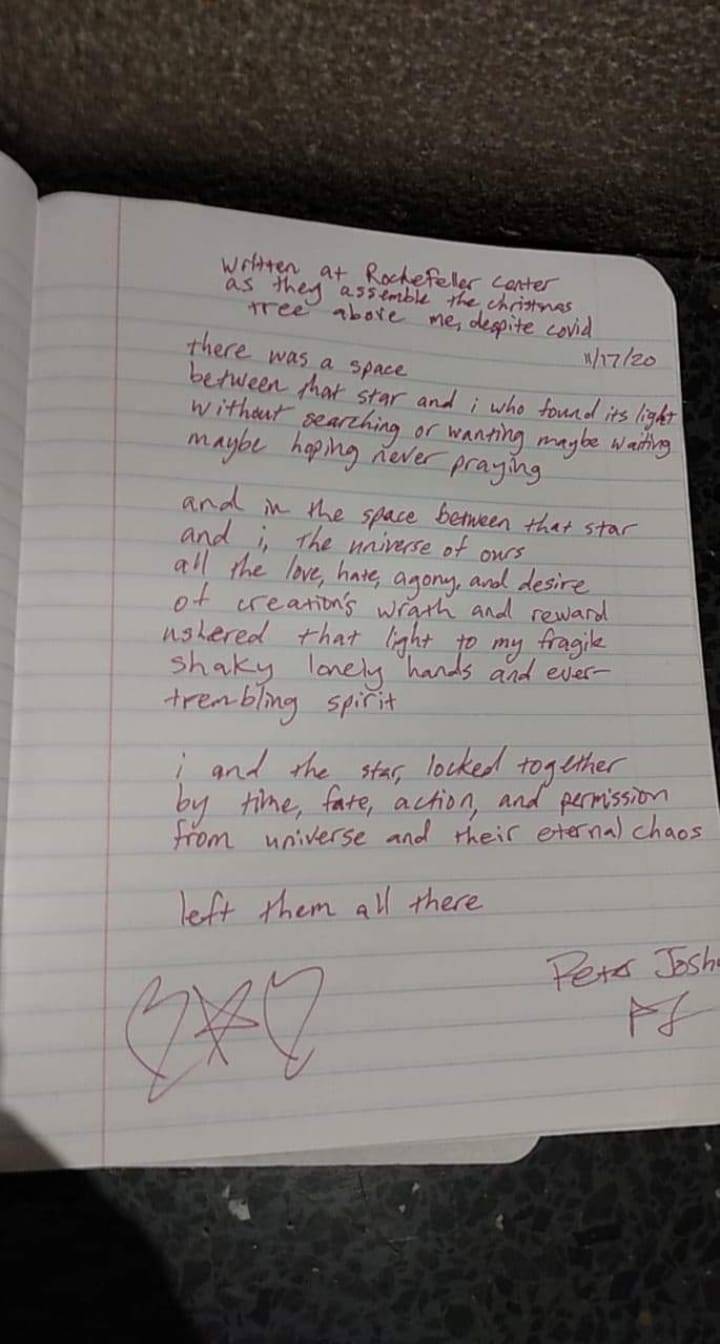 written at Rockefeller Center
as they assemble the christmas
tree above me, despite covid
11/17/20
there was a space
between that star and i who found its light
without searching or wanting maybe waiting
maybe hoping never praying
and in the space between that star
and i, the universe of ours
all the love, hate, agony, and desire
of creation's wrath and reward
ushered that light to my fragile
shaky lonely hands and ever-
trembling spirit
i and the star, locked together
by time, fate, action, and permission
from universe and their eternal chaos
left them all there
Peter Josh
PJ